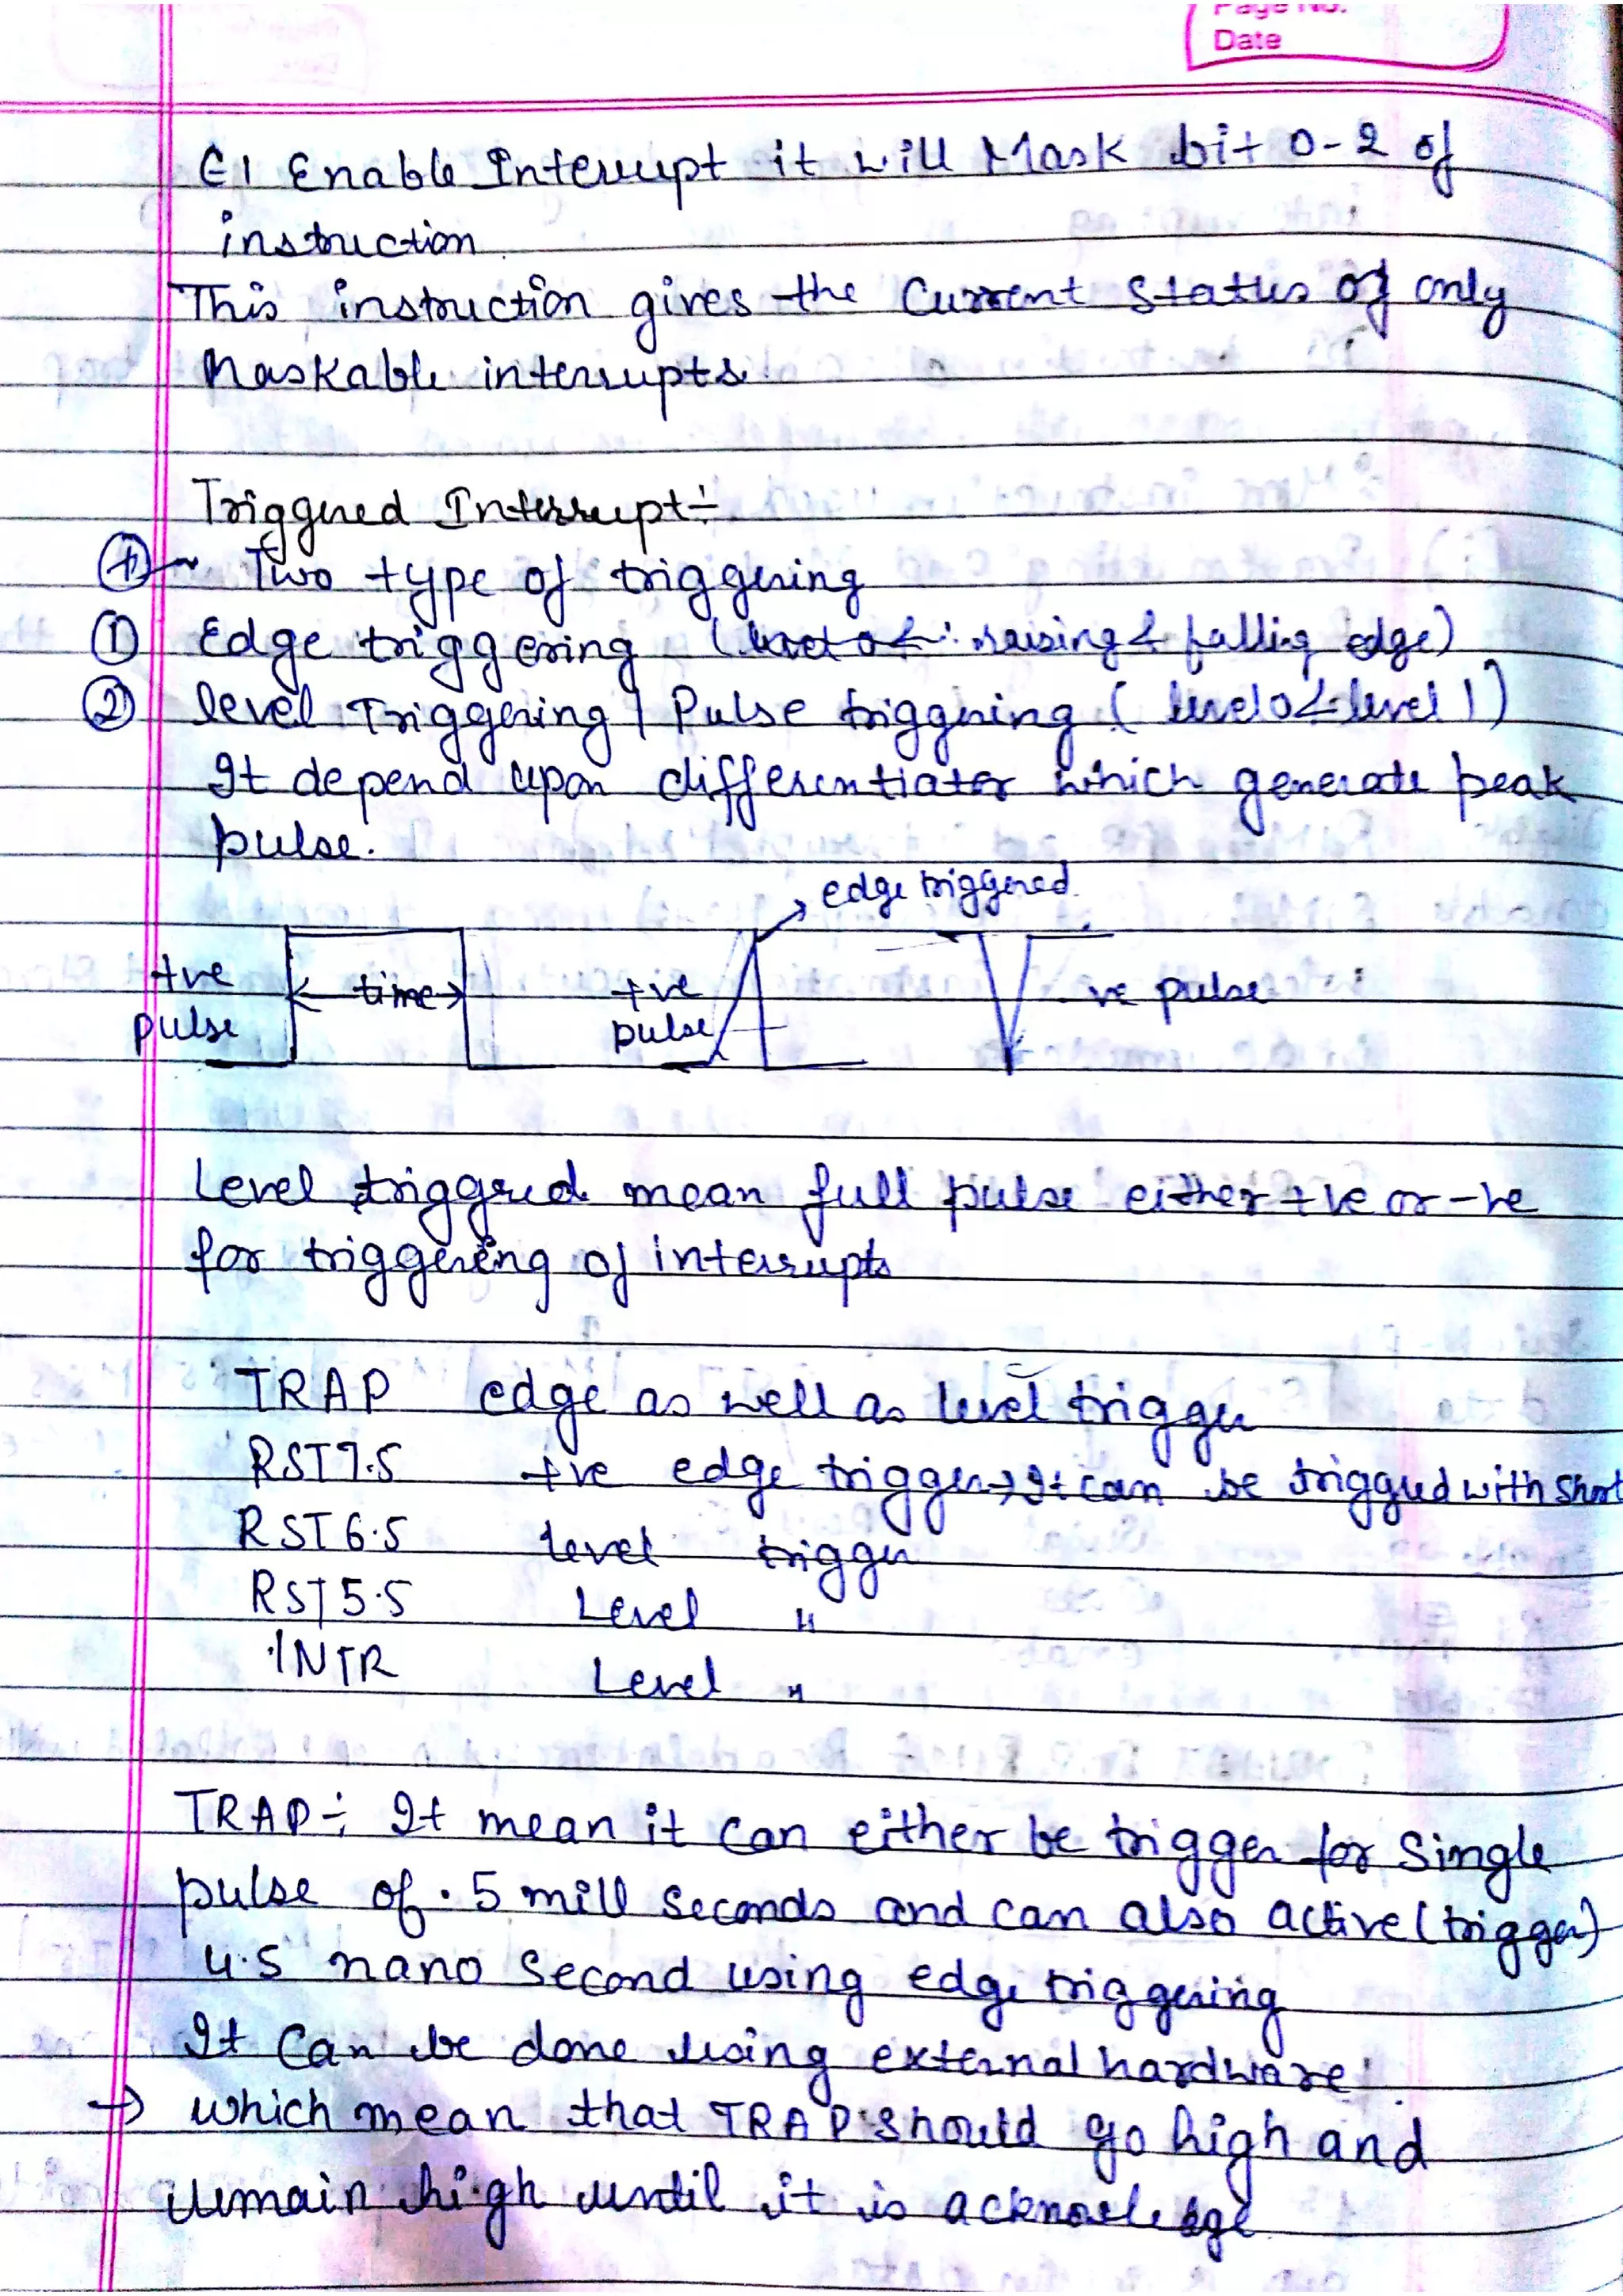 Page No.
Date
EI Enable Interrupt it will Mask bit 0-2 of
instruction
This instruction gives the Current Status of only
Maskable interrupts
Triggered Interrupt:-
Two type of triggering
① Edge triggering ( raising & falling edge)
② level Triggering | Pulse triggering ( level 0 & level 1)
It depend upon differentiator which generate peak
pulse.
edge triggered
+ve pulse
time
+ve pulse
-ve pulse
Level triggered mean full pulse either +ve or -ve
for triggering of interrupts
TRAP edge as well as level trigger
RST 7.5 +ve edge trigger → It can be triggred with short
RST 6.5 level trigger
RST 5.5 Level "
INTR Level "
TRAP :- It mean it can either be trigger for Single
pulse of .5 mill seconds and can also active (trigger)
4.5 nano second using edge triggering
It Can be done using external hardware
→ which mean that TRAP should go high and
remain high until it is acknowledge